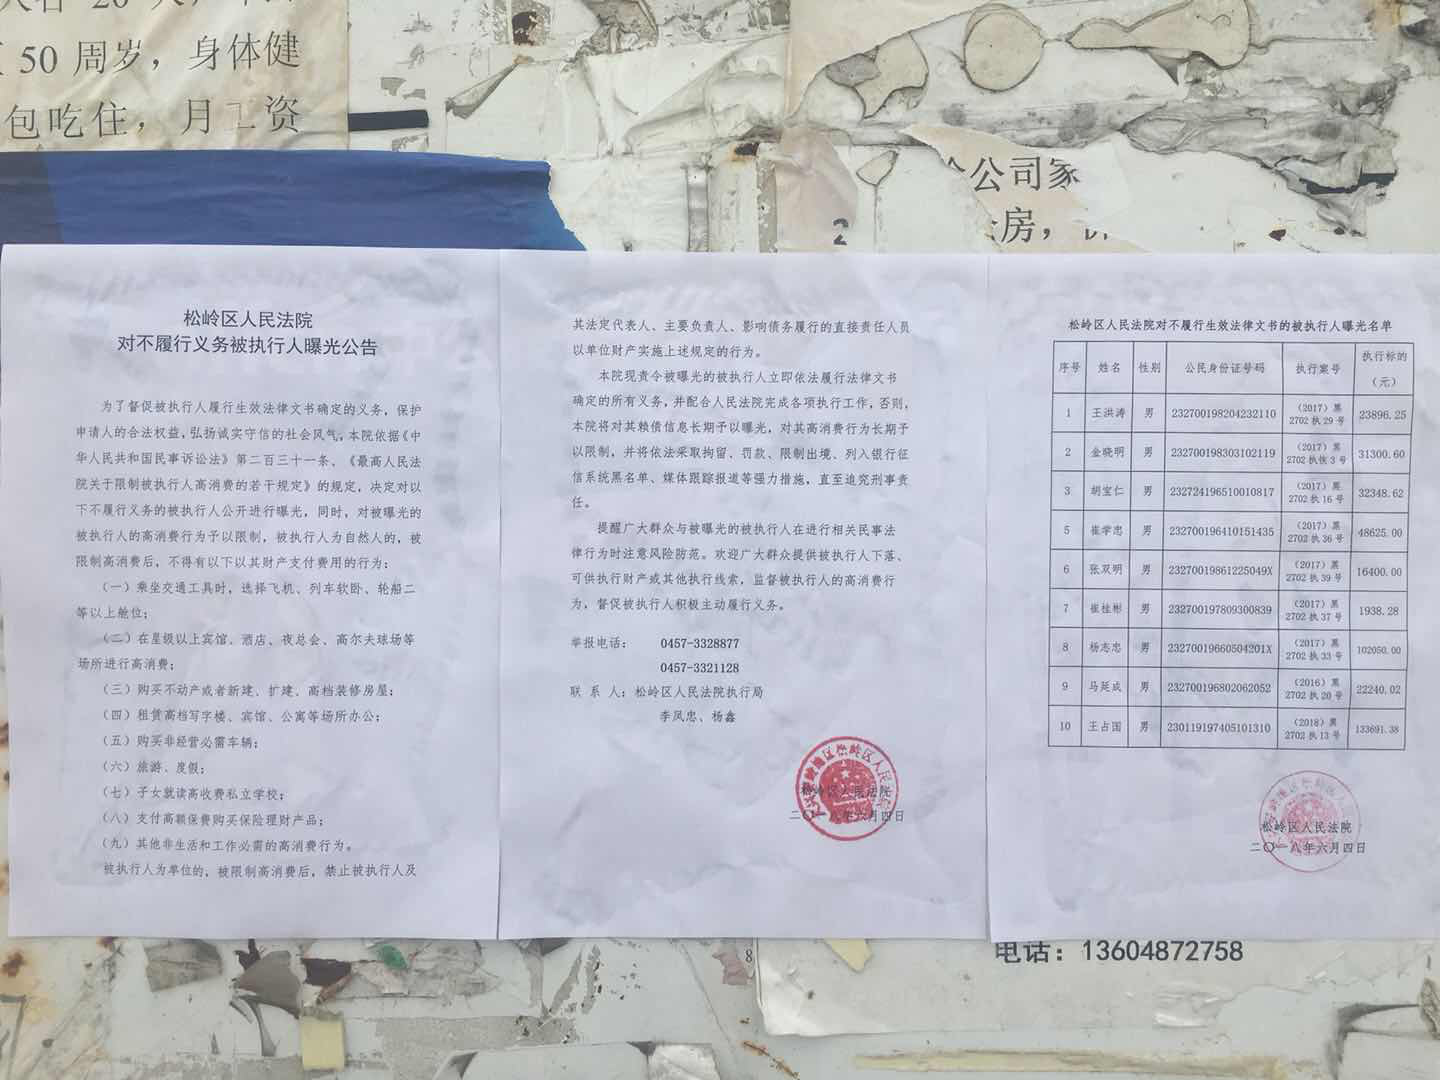 50 周岁，身体健
包吃住，月工资
公司家
房，
松岭区人民法院
对不履行义务被执行人曝光公告
为了督促被执行人履行生效法律文书确定的义务，保护
申请人的合法权益，弘扬诚实守信的社会风气，本院依据《中
华人民共和国民事诉讼法》第二百三十一条、《最高人民法
院关于限制被执行人高消费的若干规定》的规定，决定对以
下不履行义务的被执行人公开进行曝光，同时，对被曝光的
被执行人的高消费行为予以限制，被执行人为自然人的，被
限制高消费后，不得有以下以其财产支付费用的行为：
（一）乘坐交通工具时，选择飞机、列车软卧、轮船二
等以上舱位；
（二）在星级以上宾馆、酒店、夜总会、高尔夫球场等
场所进行高消费；
（三）购买不动产或者新建、扩建、高档装修房屋；
（四）租赁高档写字楼、宾馆、公寓等场所办公；
（五）购买非经营必需车辆；
（六）旅游、度假；
（七）子女就读高收费私立学校；
（八）支付高额保费购买保险理财产品；
（九）其他非生活和工作必需的高消费行为。
被执行人为单位的，被限制高消费后，禁止被执行人及
其法定代表人、主要负责人、影响债务履行的直接责任人员
以单位财产实施上述规定的行为。
本院现责令被曝光的被执行人立即依法履行法律文书
确定的所有义务，并配合人民法院完成各项执行工作，否则，
本院将对其赖债信息长期予以曝光，对其高消费行为长期予
以限制，并将依法采取拘留、罚款、限制出境、列入银行征
信系统黑名单、媒体跟踪报道等强力措施，直至追究刑事责
任。
提醒广大群众与被曝光的被执行人在进行相关民事法
律行为时注意风险防范。欢迎广大群众提供被执行人下落、
可供执行财产或其他执行线索，监督被执行人的高消费行
为，督促被执行人积极主动履行义务。
举报电话： 0457-3328877
0457-3321128
联 系 人：松岭区人民法院执行局
李凤忠、杨鑫
松岭区人民法院
二〇一八年六月四日
松岭区人民法院对不履行生效法律文书的被执行人曝光名单
序号 姓名 性别 公民身份证号码 执行案号 执行标的（元）
1 王洪涛 男 232700198204232110 （2017）黑2702执29号 23896.25
2 金晓明 男 232700198303102119 （2017）黑2702执恢3号 31300.60
3 胡宝仁 男 232724196510010817 （2017）黑2702执16号 32348.62
5 崔学忠 男 232700196410151435 （2017）黑2702执36号 48625.00
6 张双明 男 23270019861225049X （2017）黑2702执39号 16400.00
7 崔桂彬 男 232700197809300839 （2017）黑2702执37号 1938.28
8 杨志忠 男 23270019660504201X （2017）黑2702执33号 102050.00
9 马延成 男 232700196802062052 （2016）黑2702执20号 22240.02
10 王占国 男 230119197405101310 （2018）黑2702执13号 133691.38
松岭区人民法院
二〇一八年六月四日
电话：13604872758